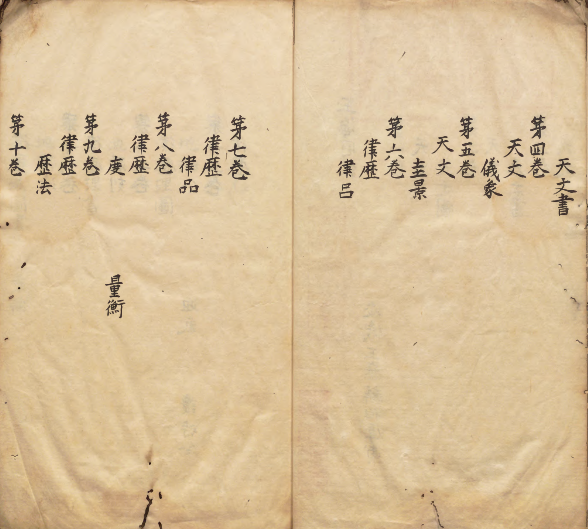 天文書
第四巻
天文
儀象
第五巻
天文
圭景
第六巻
律歴
律呂
第七巻
律歴
律品
第八巻
律歴
度 量衡
第九巻
律歴
歴法
第十巻